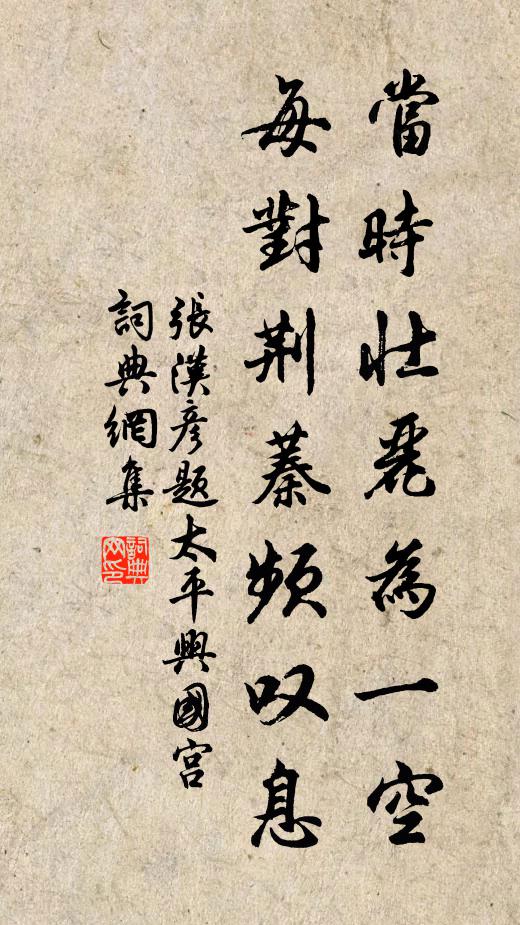 當時壯麗為一空
每對荆蓁頻叹息
張漢彦題太平興國宫
詞典網集
詞典网印